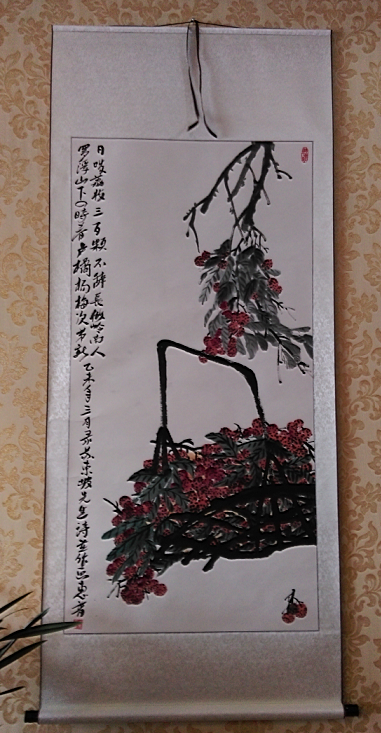 罗浮山下四時春卢橘楊梅次第新
日啖荔枝三百颗不辞長做岭南人
乙未年三月录苏東坡先生诗並